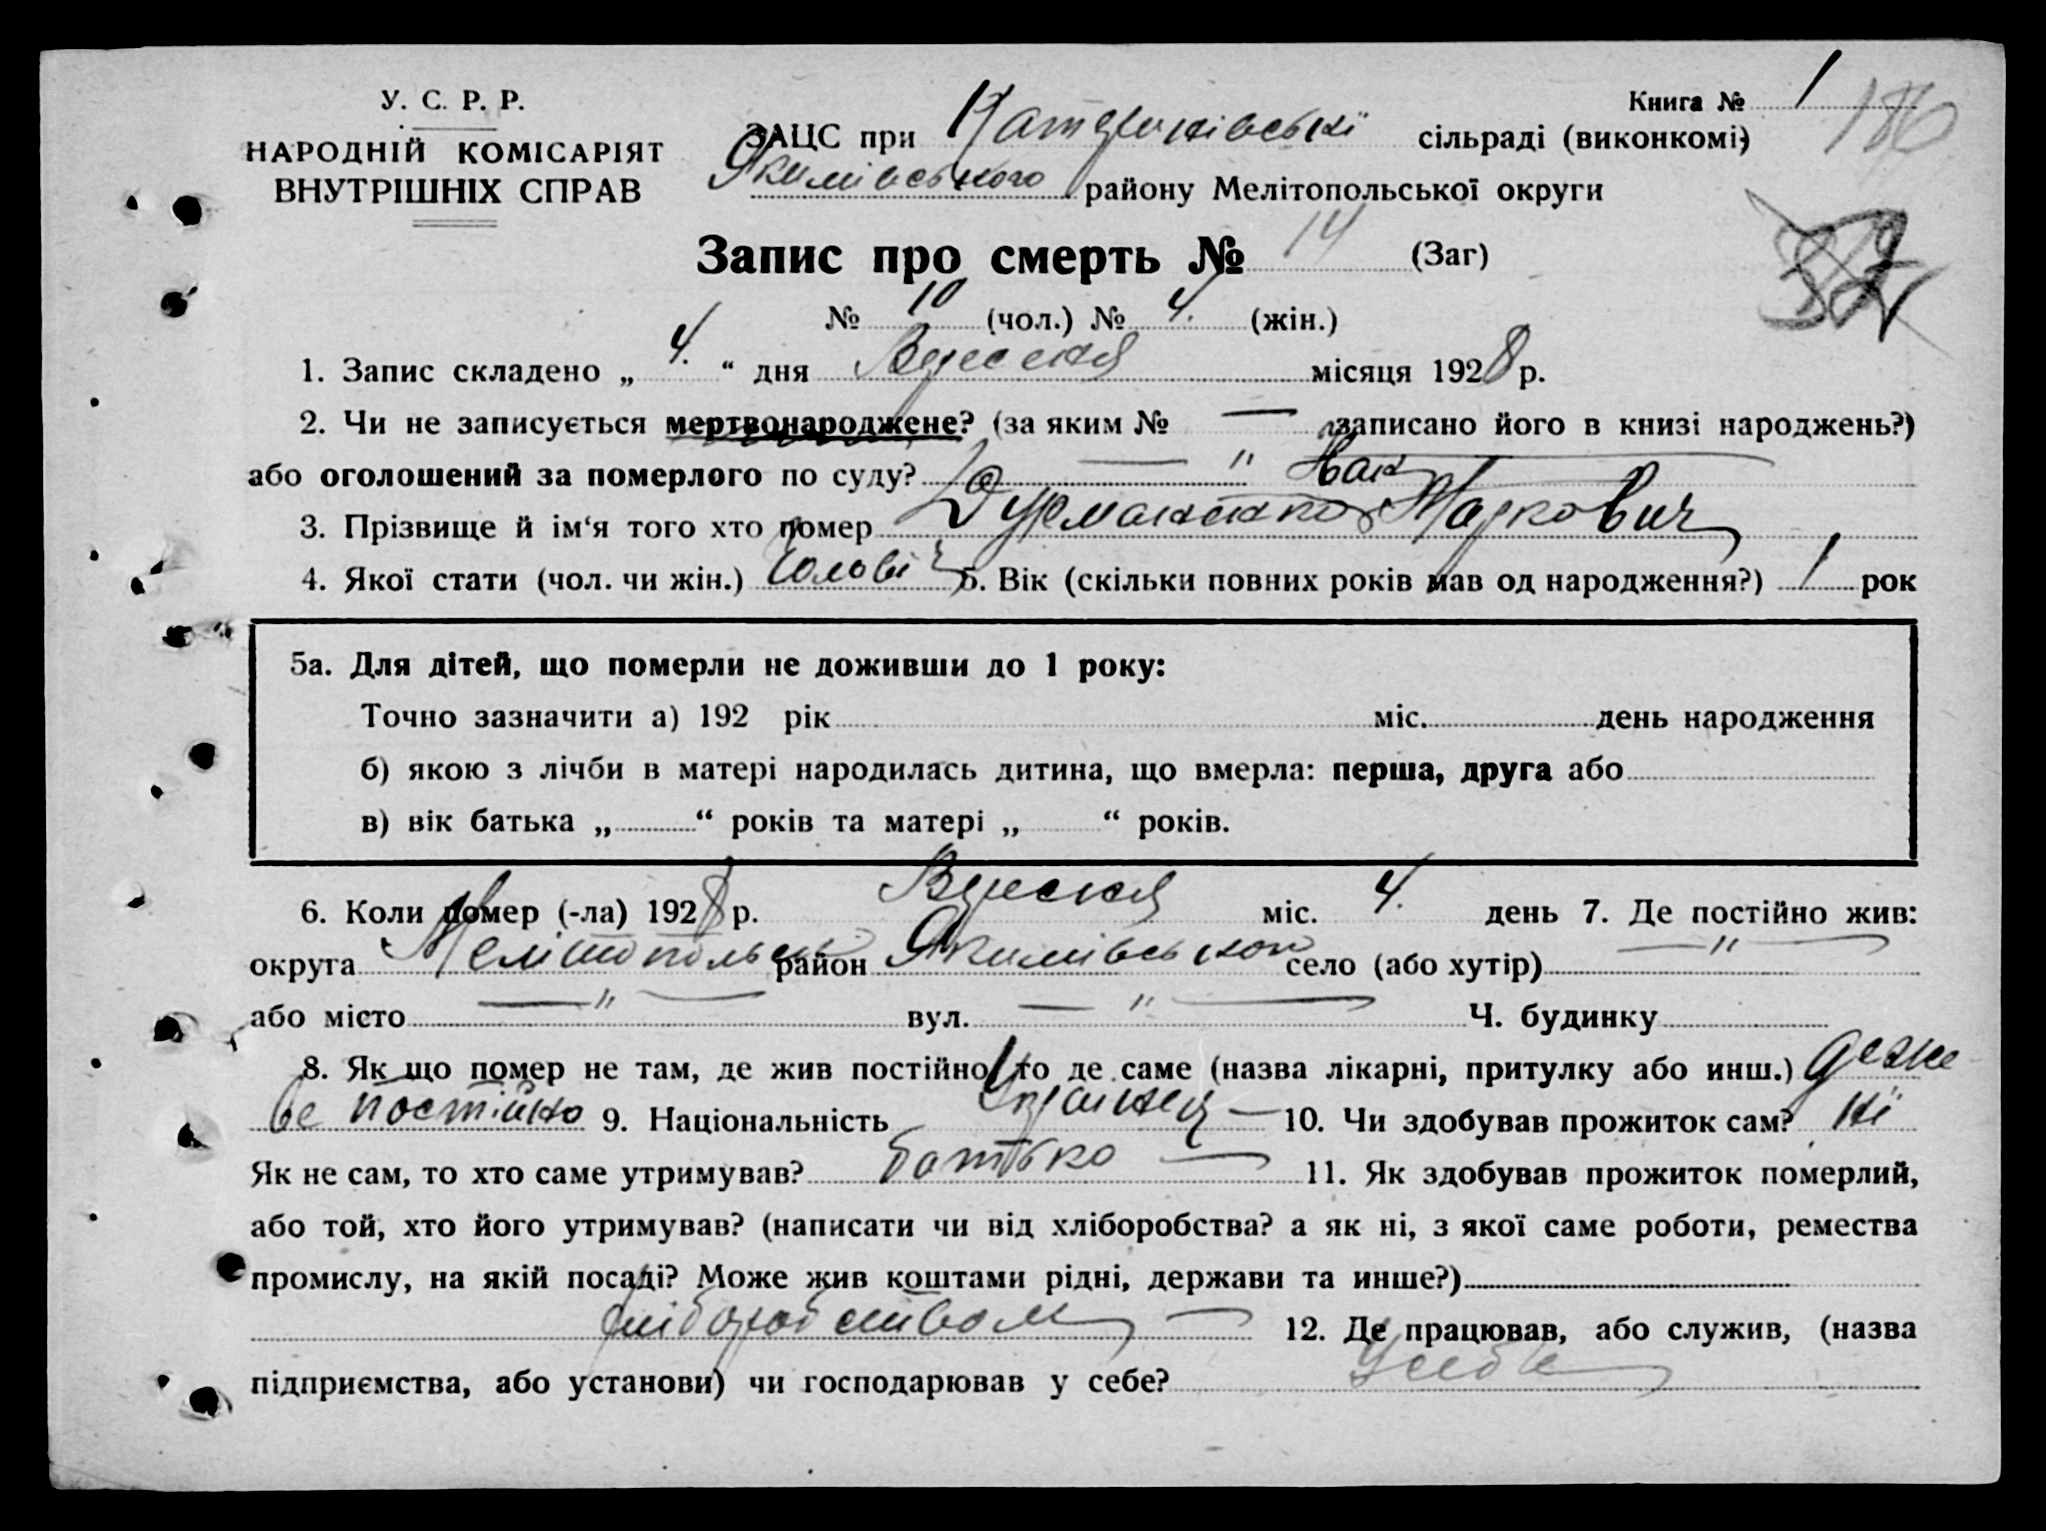 У. С. Р. Р.
НАРОДНІЙ КОМІСАРІЯТ
ВНУТРІШНІХ СПРАВ
Книга № 1
186
ЗАЦС при Катеринівські сільраді (виконкомі)
Якимівського району Мелітопольської округи
Запис про смерть № 14 (Заг)
№ 10 (чол.) № 4. (жін.)
1. Запис складено „ 4. “ дня Вересня місяця 1928 р.
2. Чи не записується мертвонароджене? (за яким № — записано його в книзі народжень?)
або оголошений за померлого по суду? — " —
3. Прізвище й ім‘я того хто помер Дурманенко Іван Маркович
4. Якої стати (чол. чи жін.) Чоловіч 5. Вік (скільки повних років мав од народження?) 1 рок
5а. Для дітей, що померли не доживши до 1 року:
Точно зазначити а) 192 рік міс. день народження
б) якою з лічби в матері народилась дитина, що вмерла: перша, друга або
в) вік батька „ “ років та матері „ “ років.
6. Коли помер (-ла) 1928 р. Вересня міс. 4. день 7. Де постійно жив:
округа Мелітопольськ район Якимівського село (або хутір) — " —
або місто — " — вул. — " — Ч. будинку
8. Як що помер не там, де жив постійно, то де саме (назва лікарні, притулку або инш.) де жи
ве постійно 9. Національність Украинец — 10. Чи здобував прожиток сам? ні
Як не сам, то хто саме утримував? батько — 11. Як здобував прожиток померлий,
або той, хто його утримував? (написати чи від хліборобства? а як ні, з якої саме роботи, ремества
промислу, на якій посаді? Може жив коштами рідні, держави та инше?)
хліборобством — 12. Де працював, або служив, (назва
підприємства, або установи) чи господарював у себе? У себе